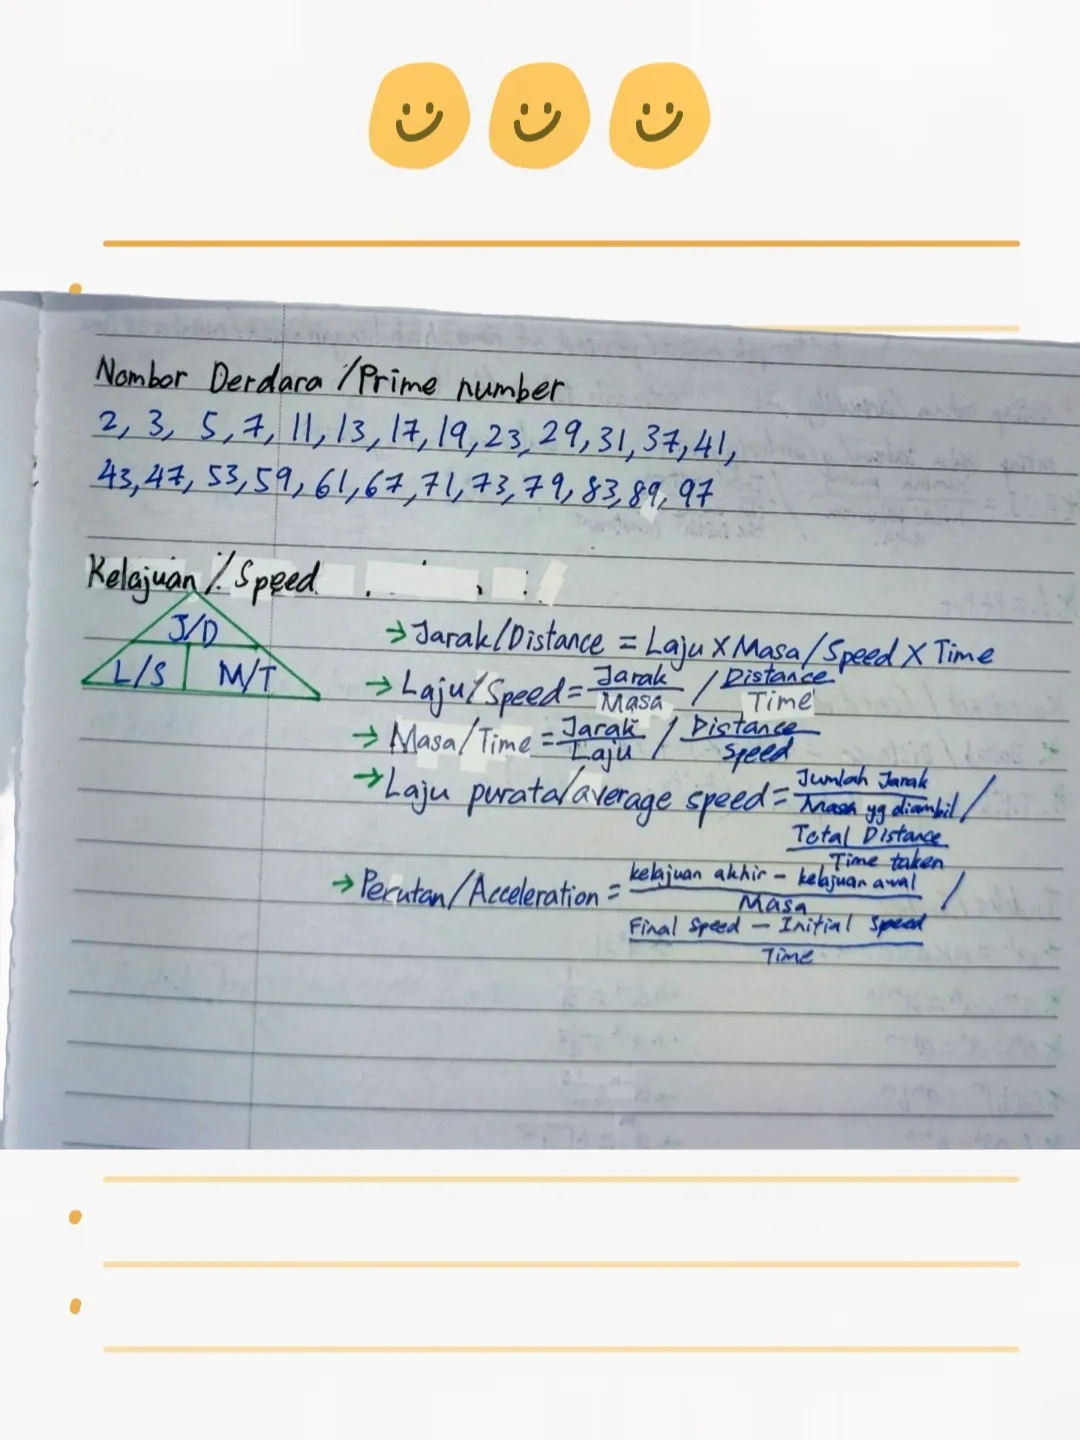 Nombor Derdara / Prime number
2, 3, 5, 7, 11, 13, 17, 19, 23, 29, 31, 37, 41,
43, 47, 53, 59, 61, 67, 71, 73, 79, 83, 89, 97
Kelajuan / Speed
J/D
L/S M/T
→ Jarak/Distance = Laju X Masa / Speed X Time
→ Laju/Speed = Jarak / Distance
Masa Time
→ Masa/Time = Jarak / Distance
Laju Speed
→ Laju purata/average speed = Jumlah Jarak /
Masa yg diambil
Total Distance
Time taken
→ Pecutan/Acceleration = kelajuan akhir - kelajuan awal /
Masa
Final Speed - Initial Speed
Time